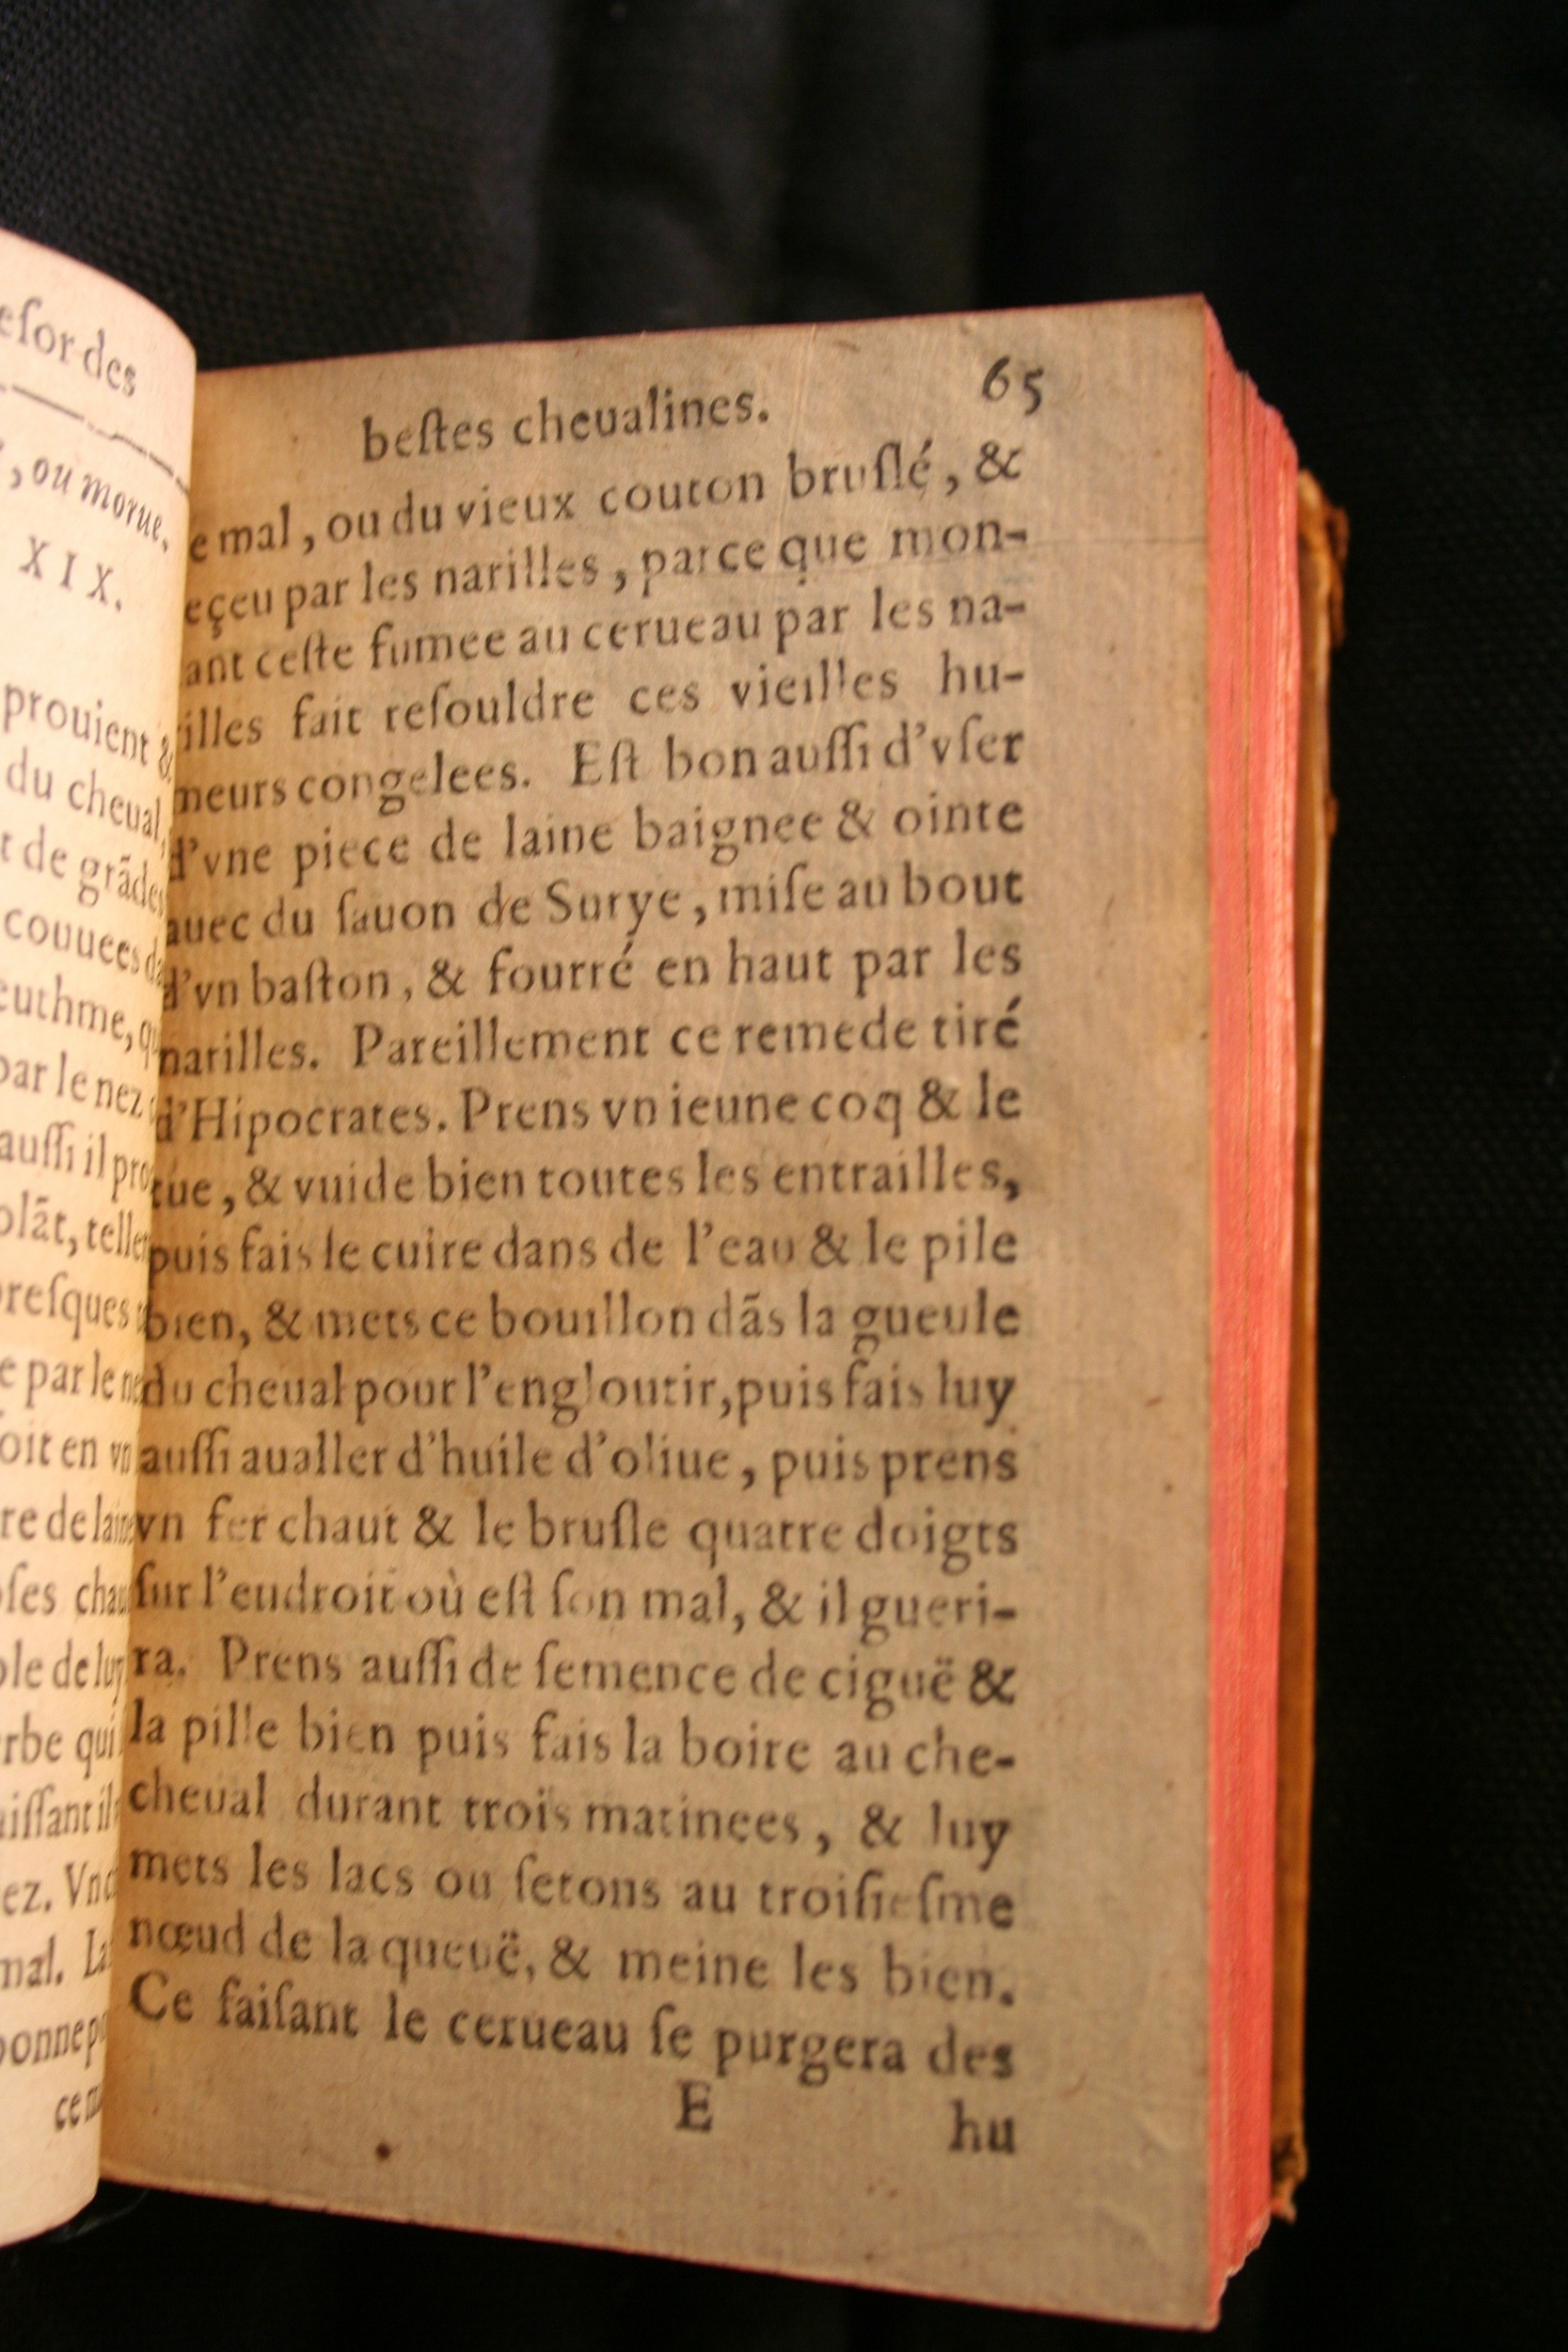 eſor des
, ou morue.
XIX.
prouient &
du cheual,
de grãdes
couuees
par le nez
auſſi il
preſques
par le
en vn
de
de luy
qui
Vne
mal. La
beſtes cheualines. 65
mal, ou du vieux couton bruſlé, &
eçeu par les narilles, parce que mon-
ant ceſte fumee au cerueau par les na-
illes fait reſouldre ces vieilles hu-
meurs congelees. Eſt bon auſſi d'vſer
d'vne piece de laine baignee & ointe
auec du ſauon de Surye, miſe au bout
d'vn baſton, & fourré en haut par les
narilles. Pareillement ce remede tiré
d'Hipocrates. Prens vn ieune coq & le
tue, & vuide bien toutes les entrailles,
puis fais le cuire dans de l'eau & le pile
bien, & mets ce bouillon dãs la gueule
du cheual pour l'engloutir, puis fais luy
auſſi aualler d'huile d'oliue, puis prens
vn fer chaut & le bruſle quatre doigts
ſur l'eudroit où eſt ſon mal, & il gueri-
ra. Prens auſſi de ſemence de ciguë &
la pille bien puis fais la boire au che-
cheual durant trois matinees, & luy
mets les lacs ou ſetons au troiſieſme
nœud de la queuë, & meine les bien.
Ce faiſant le cerueau ſe purgera des
E hu